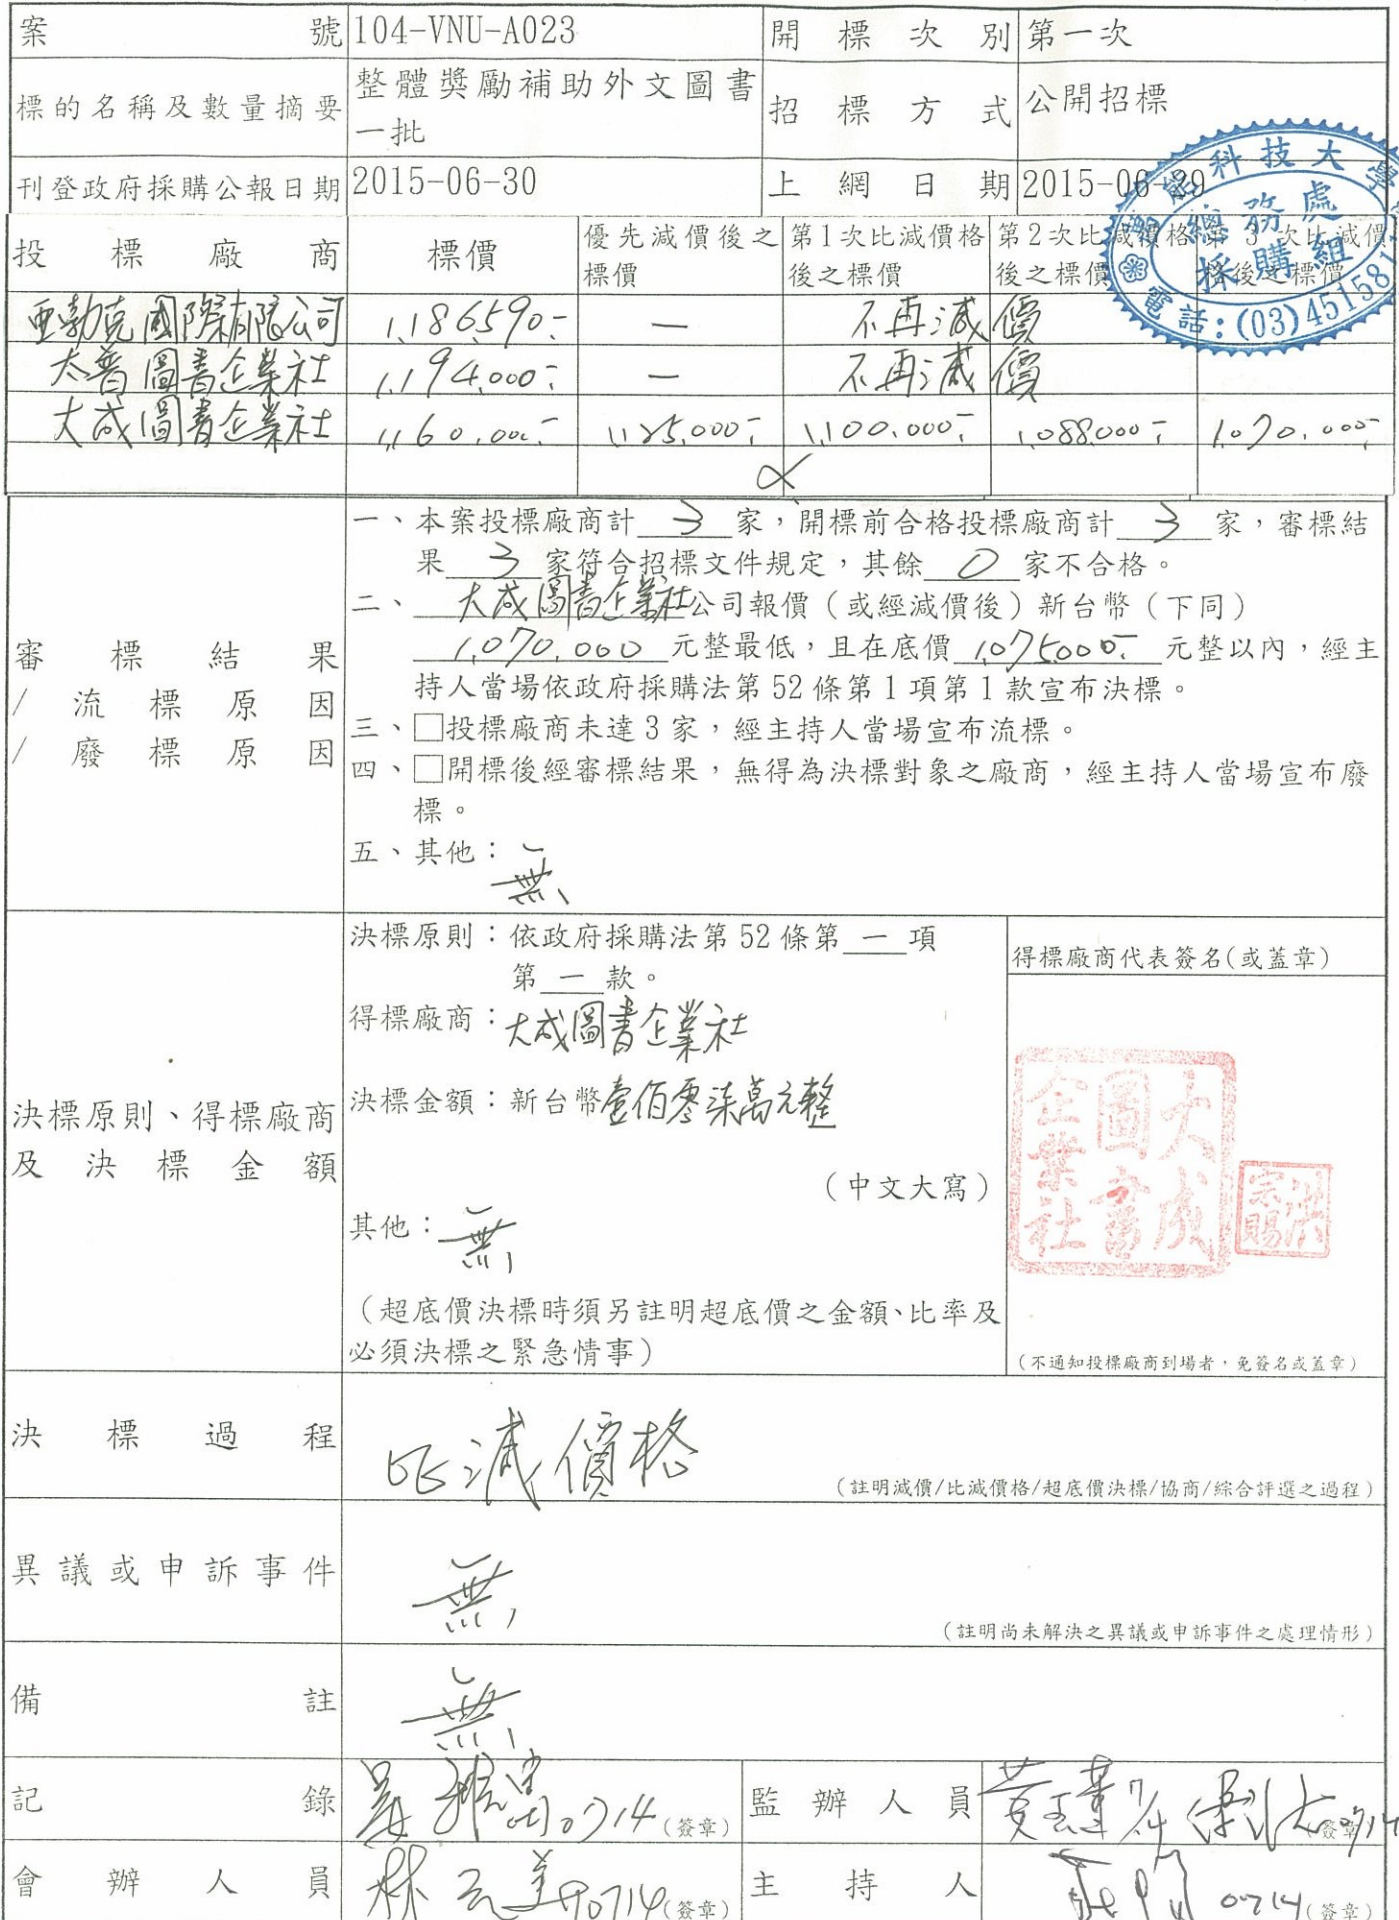 案號 104-VNU-A023 開標次別 第一次
標的名稱及數量摘要 整體獎勵補助外文圖書
一批 招標方式 公開招標
刊登政府採購公報日期 2015-06-30 上網日期 2015-06-29
能科技大學
總務處
採購組
電話:(03)451581
投標廠商 標價 優先減價後之標價 第1次比減價格後之標價 第2次比減價格後之標價 第3次比減價格後之標價
亞勃克國際有限公司 1,186,590.- — 不再減價
太普圖書企業社 1,194,000.- — 不再減價
大成圖書企業社 1,160,000.- 1,125,000.- 1,100,000.- 1,088,000.- 1,070,000.-
審標結果
/流標原因
/廢標原因
一、本案投標廠商計 3 家，開標前合格投標廠商計 3 家，審標結
果 3 家符合招標文件規定，其餘 0 家不合格。
二、大成圖書企業社公司報價（或經減價後）新台幣（下同）
1,070,000 元整最低，且在底價 1,075,000.- 元整以內，經主
持人當場依政府採購法第52條第1項第1款宣布決標。
三、□投標廠商未達3家，經主持人當場宣布流標。
四、□開標後經審標結果，無得為決標對象之廠商，經主持人當場宣布廢
標。
五、其他：無
決標原則、得標廠商
及決標金額
決標原則：依政府採購法第52條第一項
第一款。
得標廠商：大成圖書企業社
決標金額：新台幣壹佰零柒萬元整
（中文大寫）
其他：無
（超底價決標時須另註明超底價之金額、比率及
必須決標之緊急情事）
得標廠商代表簽名(或蓋章)
大成
圖書
企業社
洪
宗賜
（不通知投標廠商到場者，免簽名或蓋章）
決標過程 比減價格
（註明減價/比減價格/超底價決標/協商/綜合評選之過程）
異議或申訴事件 無
（註明尚未解決之異議或申訴事件之處理情形）
備註 無
記錄 0714 (簽章) 監辦人員 黃玉蓮 7/14 0714 (簽章)
會辦人員 林 美 0714 (簽章) 主持人 0714 (簽章)